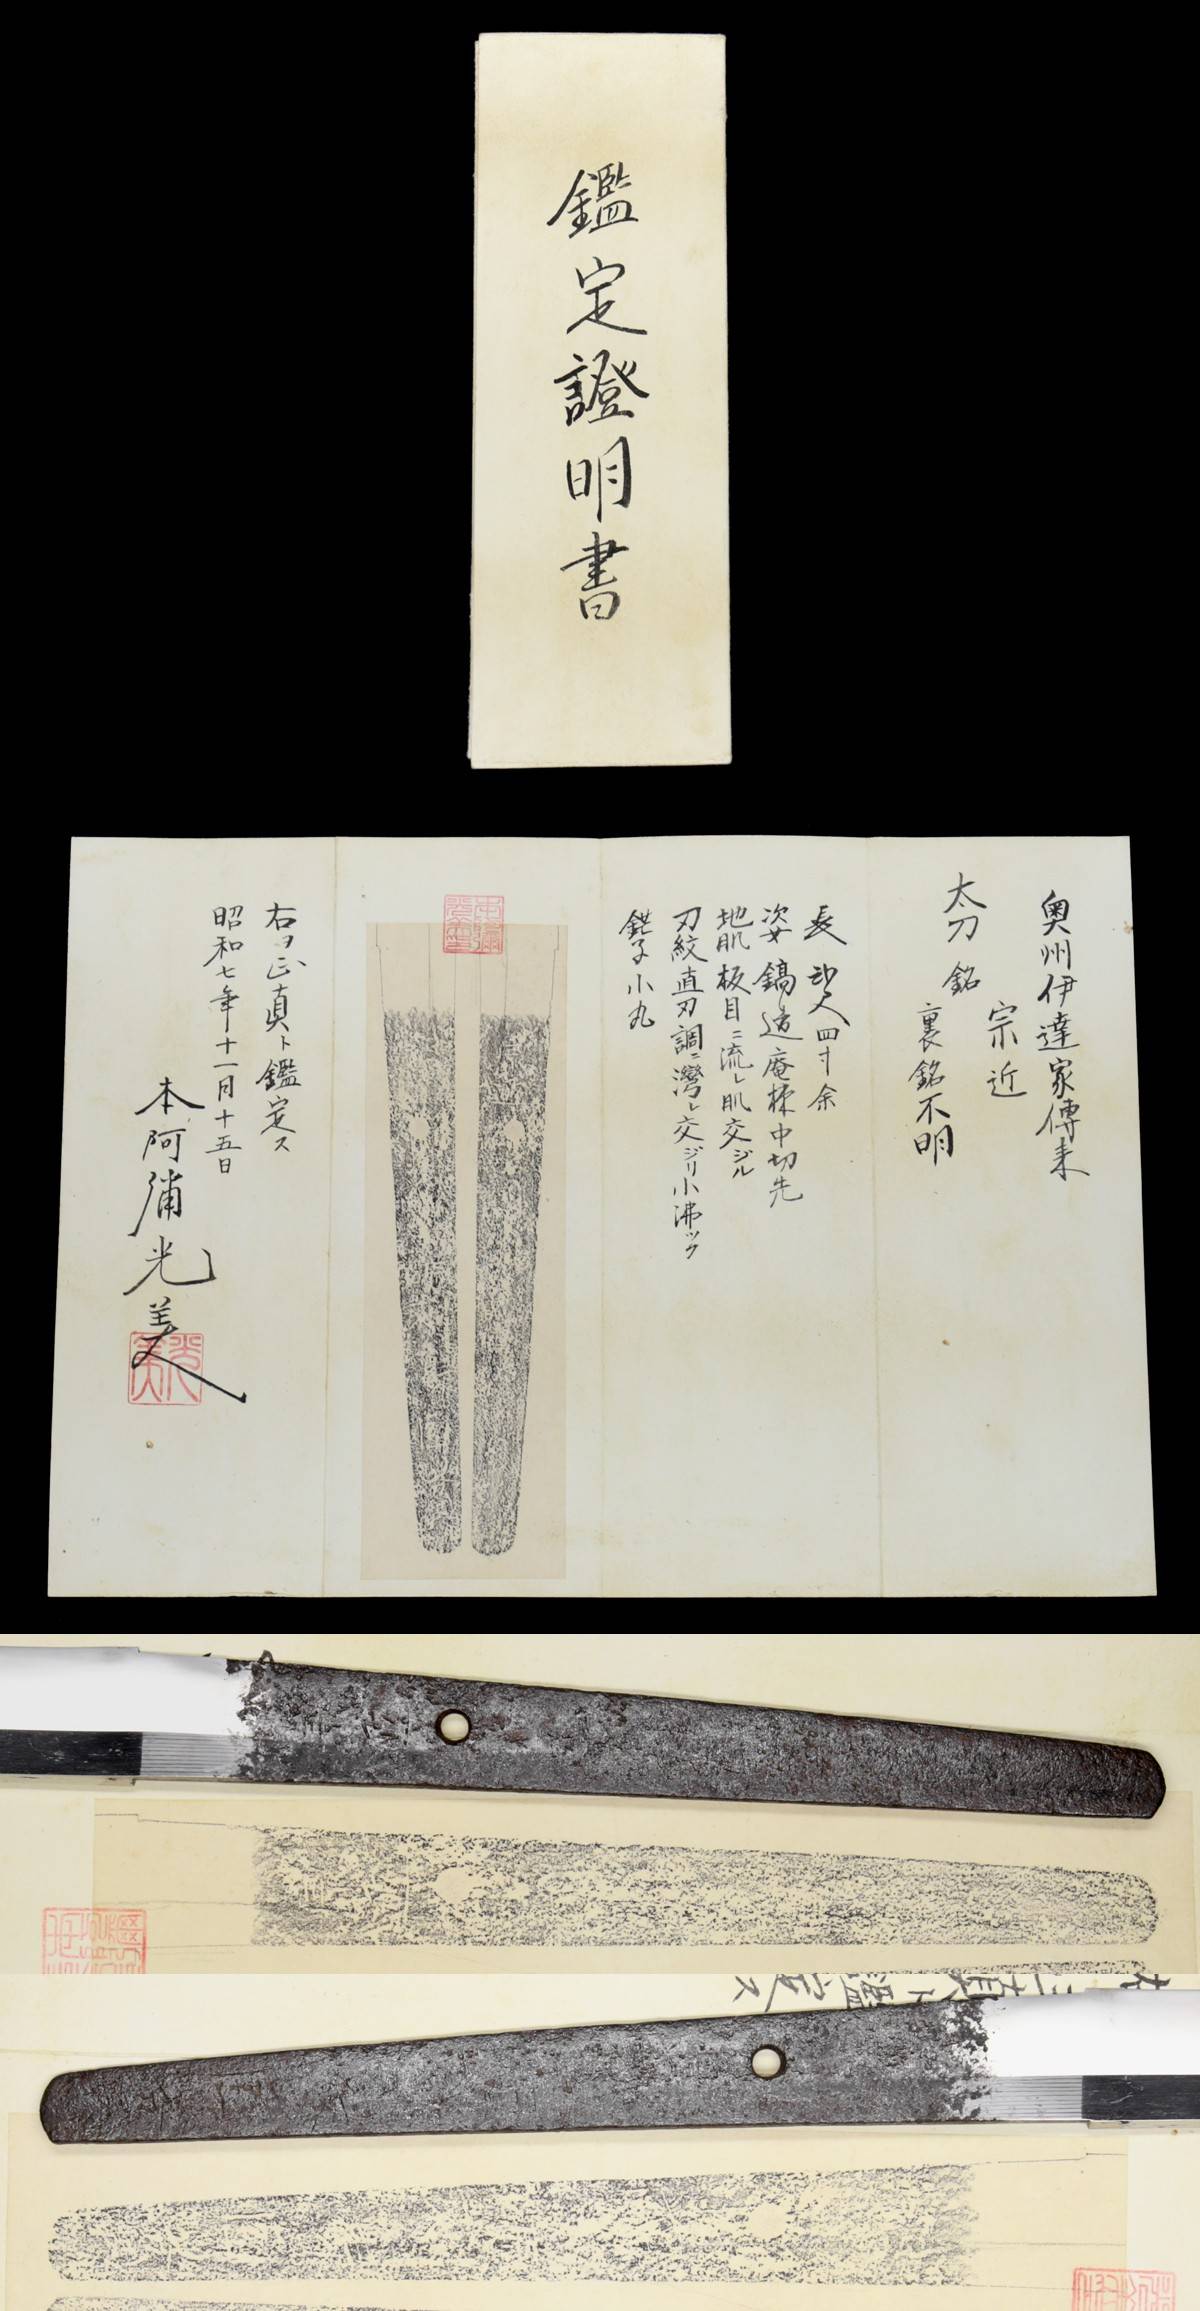 鑑定證明書
奥州伊達家傳来
太刀 銘 宗近
裏銘不明
長 弐尺四寸余
姿 鎬造庵棟中切先
地肌板目ニ流レ肌交ジル
刃紋直刃調ニ灣レ交ジリ小沸ツク
鋩子小丸
右ヲ正真ト鑑定ス
昭和七年十一月十五日
本阿彌光美
光美